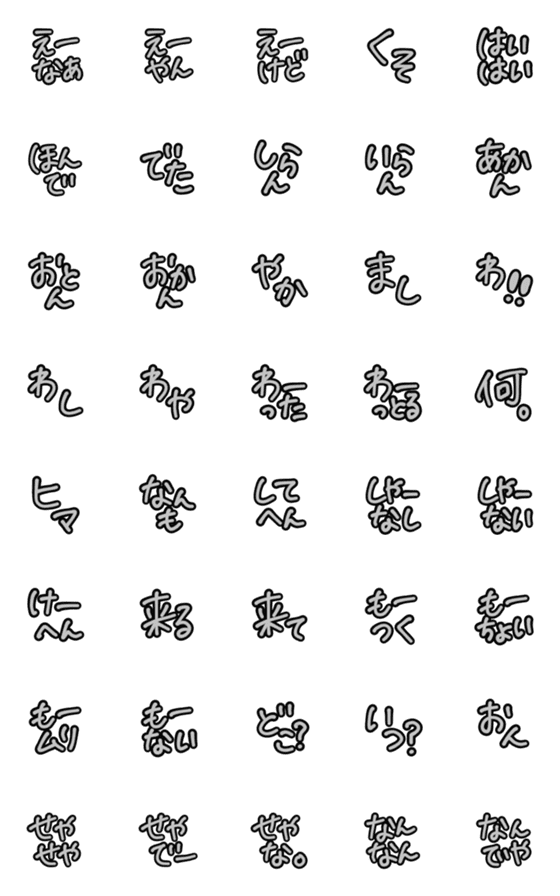 えー
なぁ
えー
やん
えー
けど
くそ
はい
はい
ほん
で
でた
しら
ん
いら
ん
あか
ん
おと
ん
おか
ん
やか
まし
わ!!
わし
わや
わー
った
わー
っとる
何。
ヒマ
なん
も
して
へん
しゃー
なし
しゃー
ない
けー
へん
来る
来て
もー
つく
もー
ちょい
もー
ムリ
もー
ない
どこ?
いつ?
おん
せや
せや
せや
でー
せや
な。
なん
なん
なん
でや